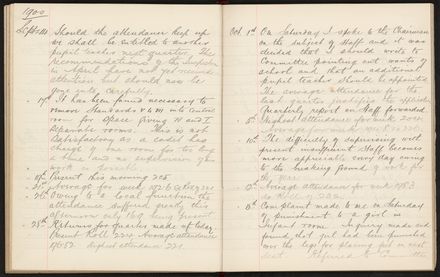 1900
Sept 14 Should the attendance keep up
we shall be entitled to another
pupil teacher next quarter. The
recommendations of the Inspector
in April have not yet received
attention but should now be
gone into carefully.
17th It has been found necessary to
remove Standards to central
room for space giving II and I
separate rooms. This is not
satisfactory as a cadet has
charge of one room for too long
a time and no supervision
work possible.
19th Present this morning 205
21st Average for week
24th Owing to a local function the
attendance suffered greatly this
afternoon only 160 being present
28th Returns for quarter made up today
Present Roll 224 Average attendance
Highest attendance 221
Oct. 1st On Saturday I spoke to the Chairman
on the subject of Staff and it was
decided that I should write to
Committee pointing out wants of
school and that an additional
pupil teacher should be appointed
The average attendance for the
last quarter justifies the application
Quarterly report on Staff forwarded.
5th Highest attendance for week
Average for week
10th The difficulty of supervision with
present insufficient Staff becomes
more appreciable every day owing
to the breaking ground of work for
the year.
12th Average attendance for week
15th Complaint made to me on Saturday
of punishment to a girl in
Infant room. Inquiry made and
found that girl had been punished
over the legs for placing feet on next
seat. Referred to Committee